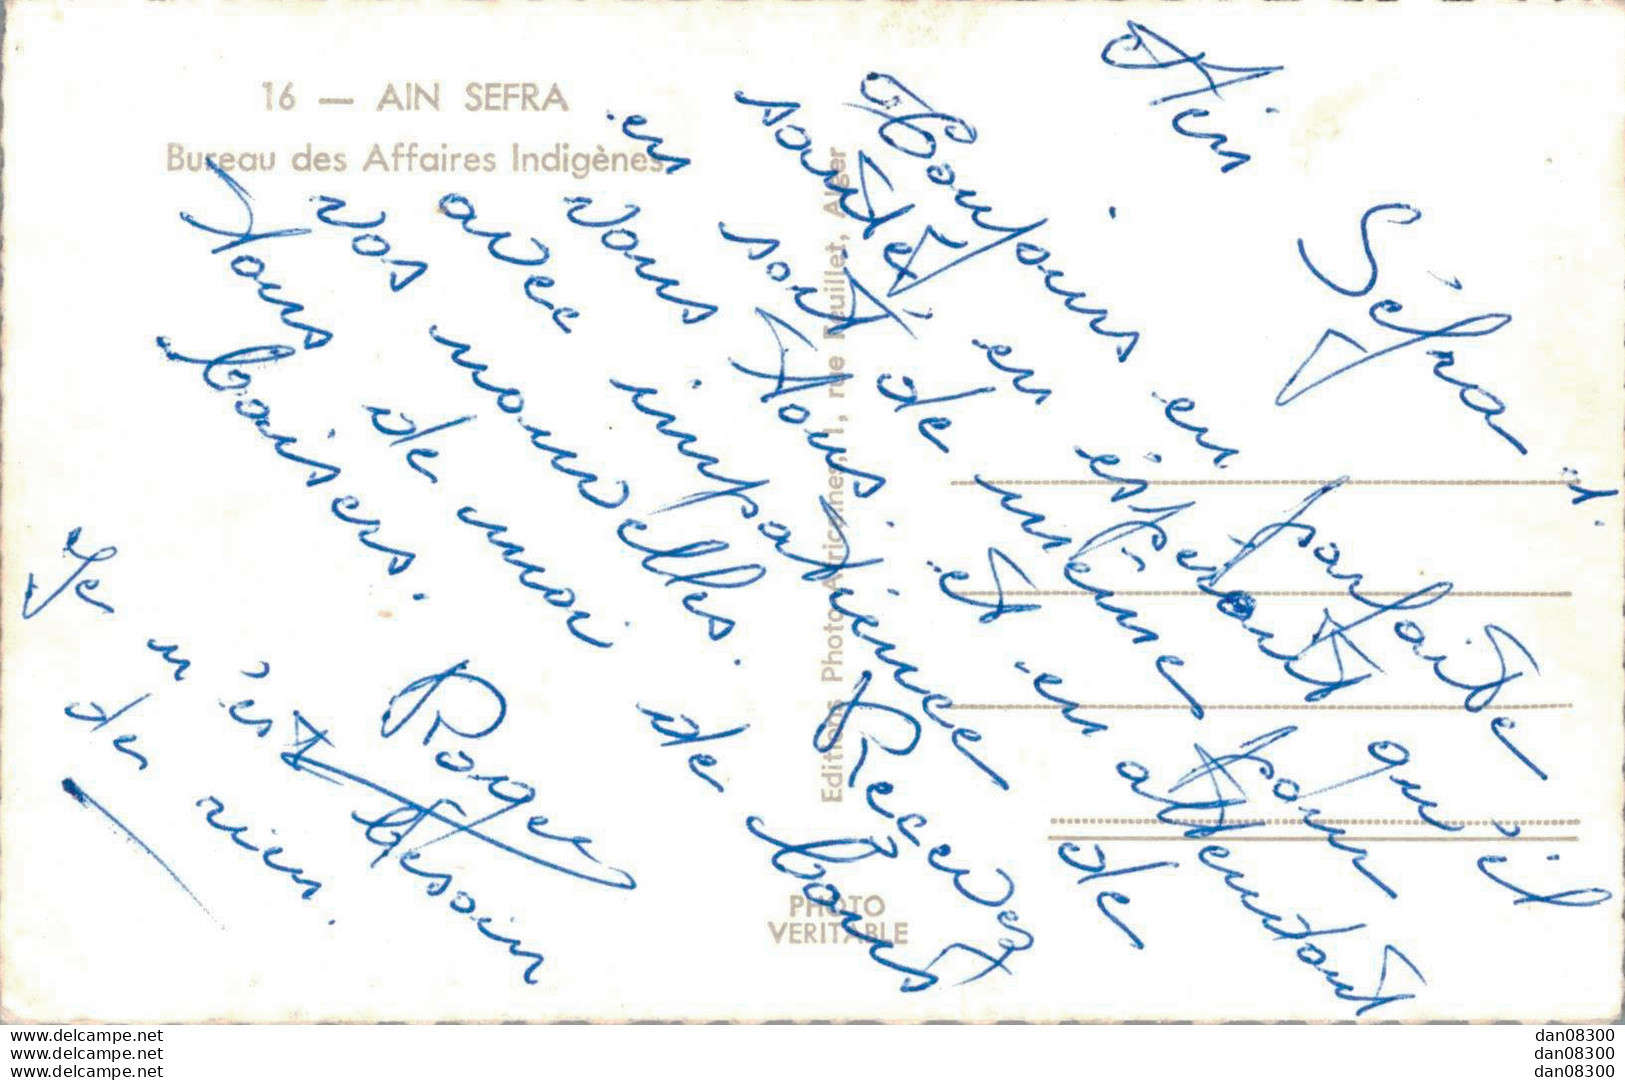 16 — AIN SEFRA
Bureau des Affaires Indigènes
Editions Photo-Africaines, 1, rue Feuillet, Alger
PHOTO
VERITABLE
Aïn Séfra
Toujours en parfaite
santé, en espérant qu'il
en soit de même pour
vous Tous. et en attendant
avec impatience de
vos nouvelles. Recevez
Tous de moi de bons
baisers.
Roger
Je n'est besoin
de rien.
www.delcampe.net
www.delcampe.net
www.delcampe.net
dan08300
dan08300
dan08300